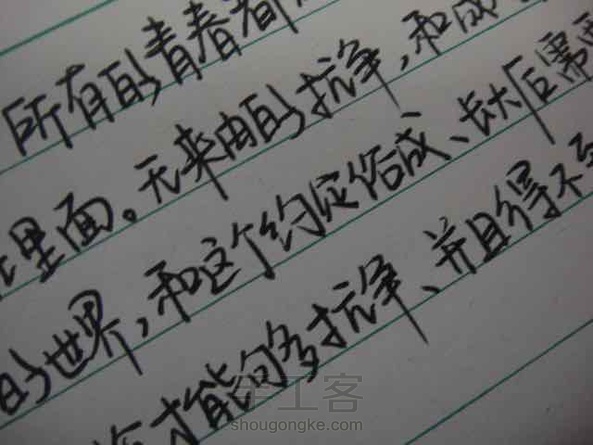 所有的青春都
里面。无来由的抗争,和成
的世界,和这个约定俗成、长大后需要
才能够多抗争、并且得不到
手工客
shougongke.com